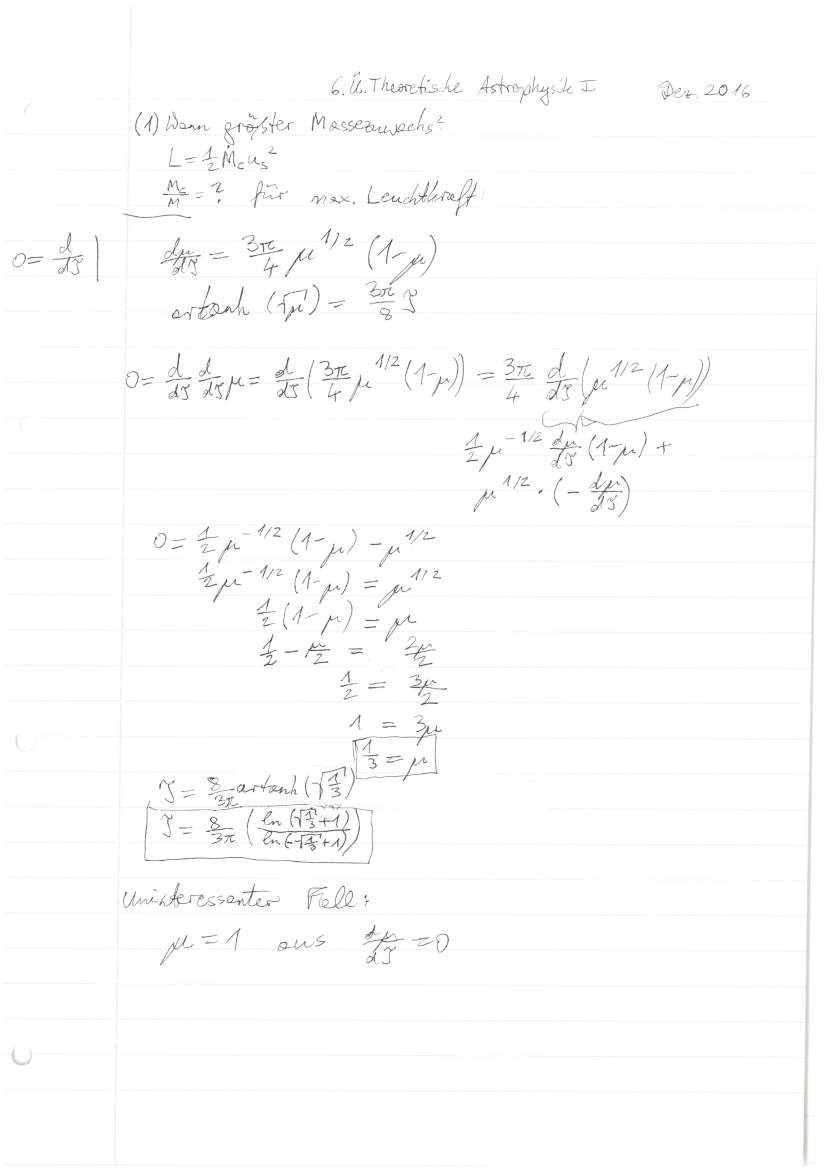 6. Ü. Theoretische Astrophysik I Dez. 2016
(1) Wann größter Massezuwachs?
L = 1/2 Ṁc us²
Mc/M = ? für max. Leuchtkraft
0 = d/dτ | dμ/dτ = 3π/4 μ^1/2 (1-μ)
artanh (√μ) = 3π/8 τ
0 = d/dτ d/dτ μ = d/dτ (3π/4 μ^1/2 (1-μ)) = 3π/4 d/dτ (μ^1/2 (1-μ))
1/2 μ^-1/2 dμ/dτ (1-μ) +
μ^1/2 · (- dμ/dτ)
0 = 1/2 μ^-1/2 (1-μ) - μ^1/2
1/2 μ^-1/2 (1-μ) = μ^1/2
1/2 (1-μ) = μ
1/2 - μ/2 = 2μ/2
1/2 = 3μ/2
1 = 3μ
1/3 = μ
τ = 8/3π artanh (√1/3)
τ = 8/3π (ln (√1/3 + 1) / ln (-√1/3 + 1))
Uninteressanter Fall:
μ = 1 aus dμ/dτ = 0